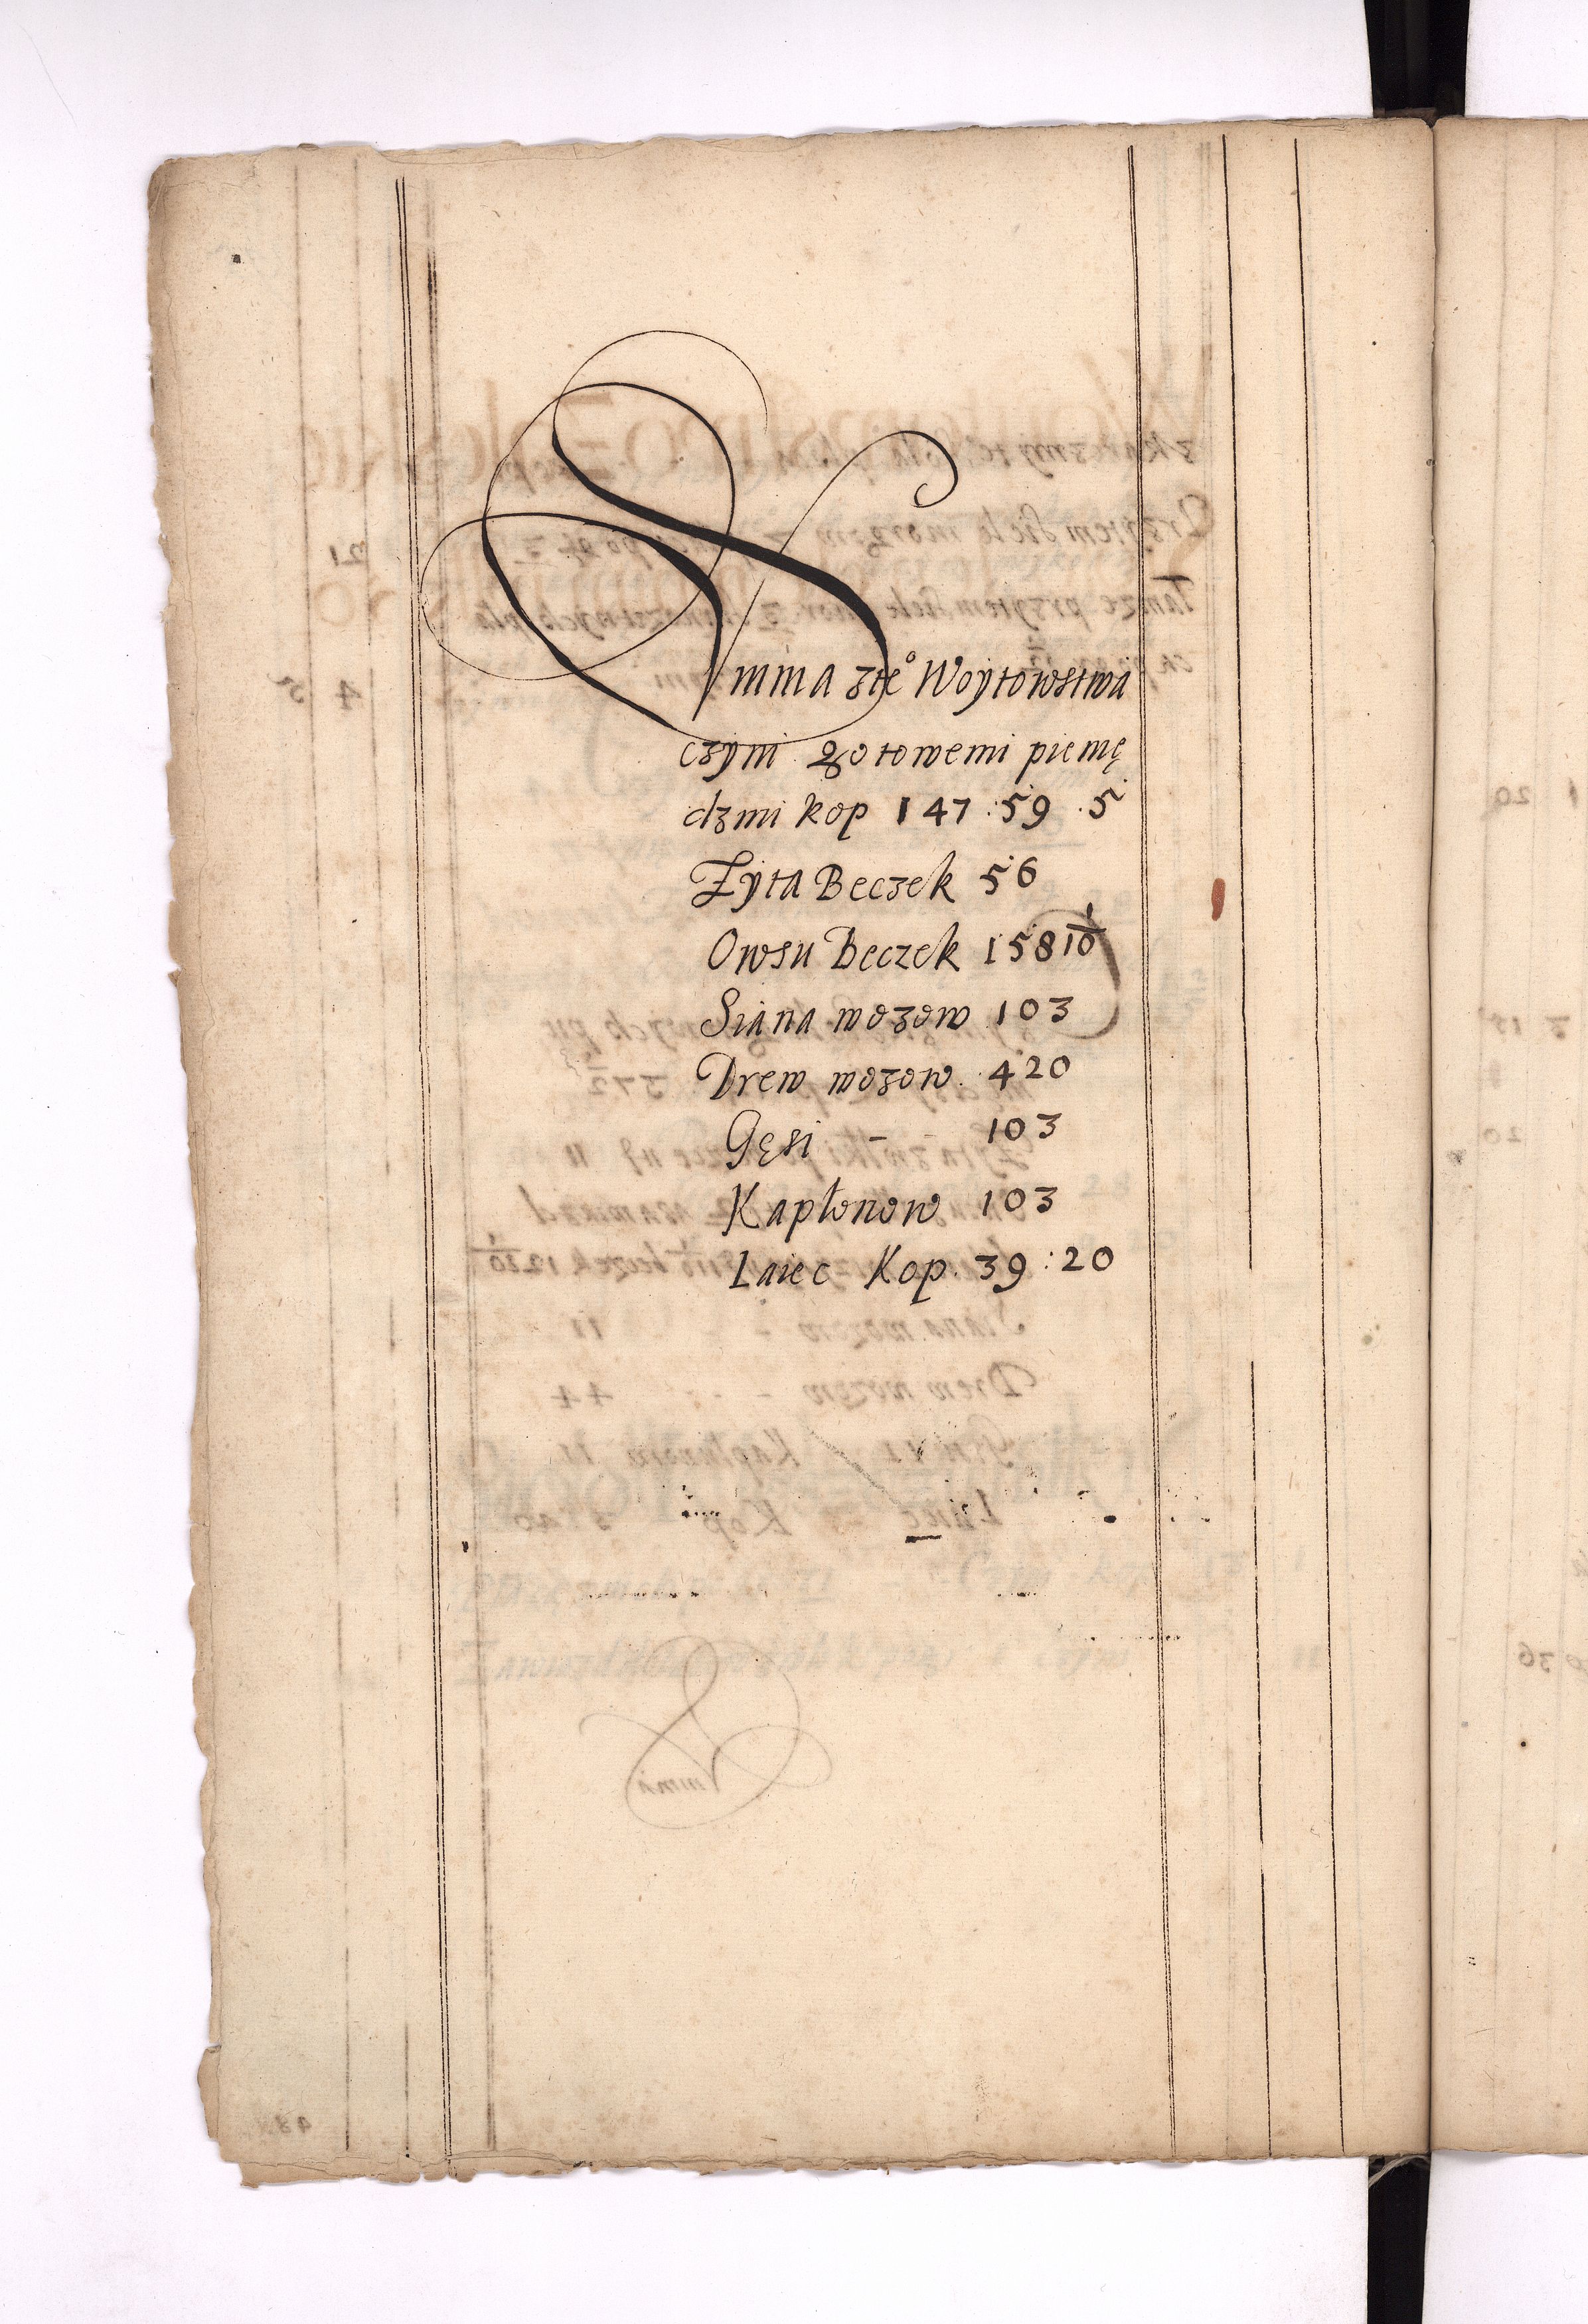 Summa z te° Woytowstwa
czyni gotowemi pienię
dzmi kop 147 . 59 . 5
Zyta Beczek 56
Owsu Beczek 158 1/10
Siana wozow 103
Drew wozow 420
Gęsi - - 103
Kapłonow 103
Iaiec Kop. 39 : 20